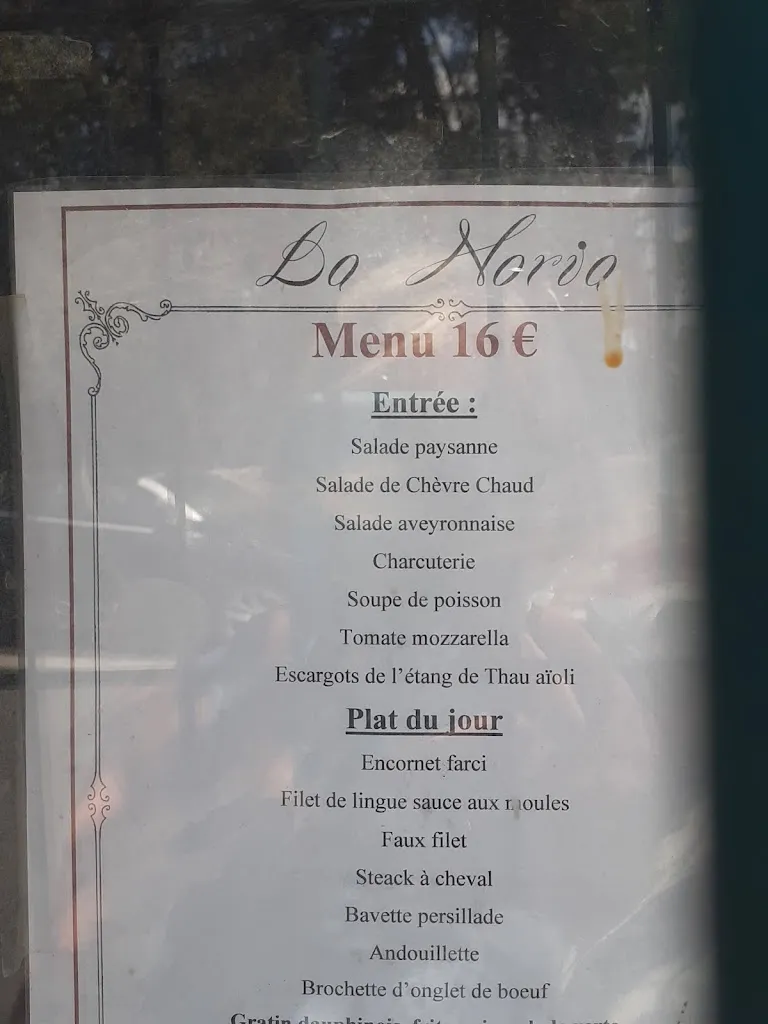 La Noria
Menu 16 €
Entrée :
Salade paysanne
Salade de Chèvre Chaud
Salade aveyronnaise
Charcuterie
Soupe de poisson
Tomate mozzarella
Escargots de l'étang de Thau aïoli
Plat du jour
Encornet farci
Filet de lingue sauce aux moules
Faux filet
Steack à cheval
Bavette persillade
Andouillette
Brochette d'onglet de boeuf
Gratin dauphinois